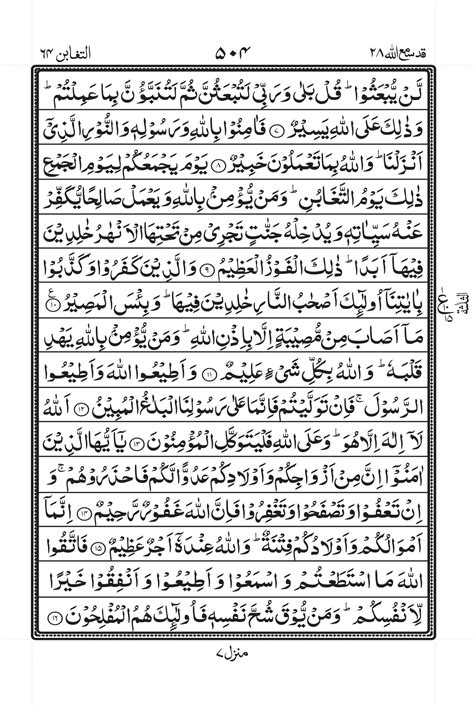 قد سمع الله ٢٨ ۵۰۴ التغابن ٦٤
لَّنْ يُّبْعَثُوْا ؕ قُلْ بَلٰى وَ رَبِّيْ لَتُبْعَثُنَّ ثُمَّ لَتُنَبَّؤُنَّ بِمَا عَمِلْتُمْ ؕ
وَ ذٰلِكَ عَلَى اللّٰهِ يَسِيْرٌ ۝۷ فَاٰمِنُوْا بِاللّٰهِ وَ رَسُوْلِهٖ وَ النُّوْرِ الَّذِيْۤ
اَنْزَلْنَا ؕ وَ اللّٰهُ بِمَا تَعْمَلُوْنَ خَبِيْرٌ ۝۸ يَوْمَ يَجْمَعُكُمْ لِيَوْمِ الْجَمْعِ
ذٰلِكَ يَوْمُ التَّغَابُنِ ؕ وَ مَنْ يُّؤْمِنْۢ بِاللّٰهِ وَ يَعْمَلْ صَالِحًا يُّكَفِّرْ
عَنْهُ سَيِّاٰتِهٖ وَ يُدْخِلْهُ جَنّٰتٍ تَجْرِيْ مِنْ تَحْتِهَا الْاَنْهٰرُ خٰلِدِيْنَ
فِيْهَاۤ اَبَدًا ؕ ذٰلِكَ الْفَوْزُ الْعَظِيْمُ ۝۹ وَ الَّذِيْنَ كَفَرُوْا وَ كَذَّبُوْا
بِاٰيٰتِنَاۤ اُولٰٓئِكَ اَصْحٰبُ النَّارِ خٰلِدِيْنَ فِيْهَا ؕ وَ بِئْسَ الْمَصِيْرُ ۝۱۰ ع
مَاۤ اَصَابَ مِنْ مُّصِيْبَةٍ اِلَّا بِاِذْنِ اللّٰهِ ؕ وَ مَنْ يُّؤْمِنْۢ بِاللّٰهِ يَهْدِ
قَلْبَهٗ ؕ وَ اللّٰهُ بِكُلِّ شَيْءٍ عَلِيْمٌ ۝۱۱ وَ اَطِيْعُوا اللّٰهَ وَ اَطِيْعُوا
الرَّسُوْلَ ۚ فَاِنْ تَوَلَّيْتُمْ فَاِنَّمَا عَلٰى رَسُوْلِنَا الْبَلٰغُ الْمُبِيْنُ ۝۱۲ اَللّٰهُ
لَاۤ اِلٰهَ اِلَّا هُوَ ؕ وَ عَلَى اللّٰهِ فَلْيَتَوَكَّلِ الْمُؤْمِنُوْنَ ۝۱۳ يٰۤاَيُّهَا الَّذِيْنَ
اٰمَنُوْۤا اِنَّ مِنْ اَزْوَاجِكُمْ وَ اَوْلَادِكُمْ عَدُوًّا لَّكُمْ فَاحْذَرُوْهُمْ ۚ وَ
اِنْ تَعْفُوْا وَ تَصْفَحُوْا وَ تَغْفِرُوْا فَاِنَّ اللّٰهَ غَفُوْرٌ رَّحِيْمٌ ۝۱۴ اِنَّمَاۤ
اَمْوَالُكُمْ وَ اَوْلَادُكُمْ فِتْنَةٌ ؕ وَ اللّٰهُ عِنْدَهٗۤ اَجْرٌ عَظِيْمٌ ۝۱۵ فَاتَّقُوا
اللّٰهَ مَا اسْتَطَعْتُمْ وَ اسْمَعُوْا وَ اَطِيْعُوْا وَ اَنْفِقُوْا خَيْرًا
لِّاَنْفُسِكُمْ ؕ وَ مَنْ يُّوْقَ شُحَّ نَفْسِهٖ فَاُولٰٓئِكَ هُمُ الْمُفْلِحُوْنَ ۝۱۶
منزل ۷